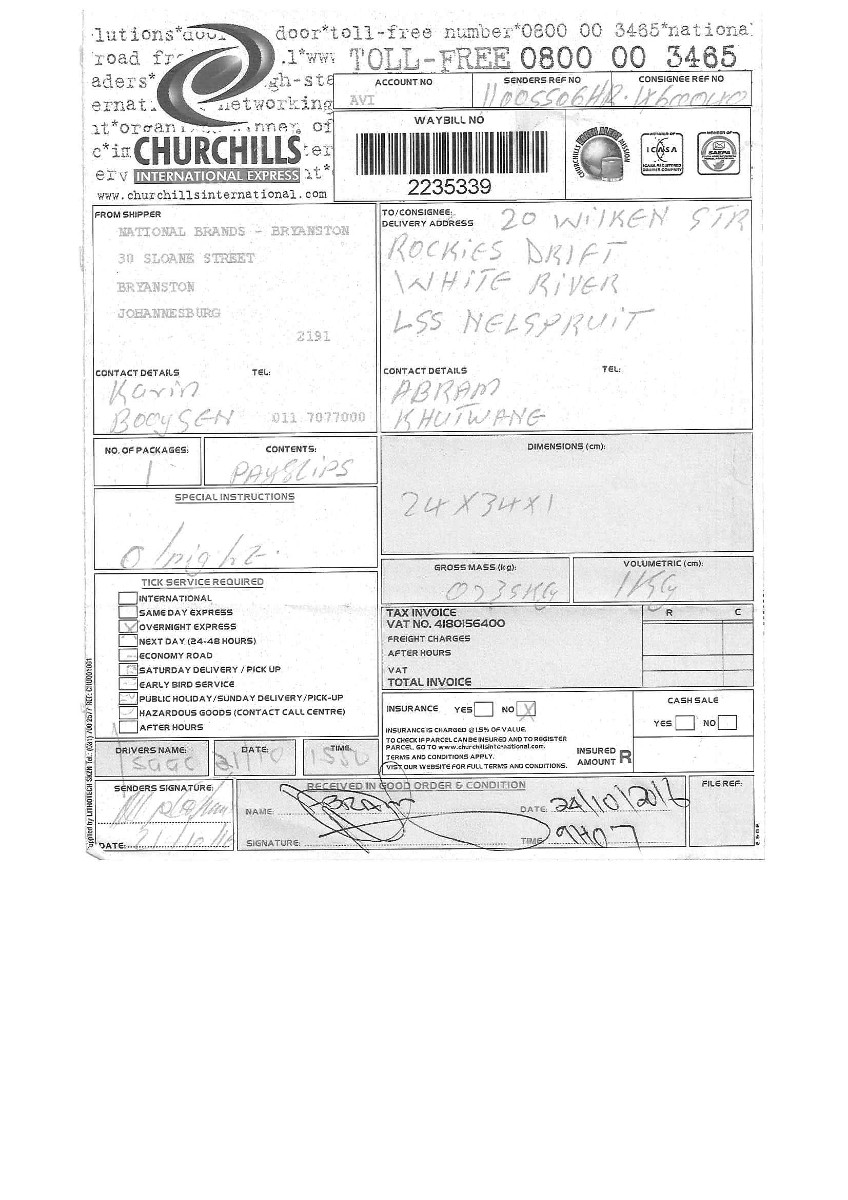 lutions*door door*toll-free number*0800 00 3465*national
road fre .l*www TOLL-FREE 0800 00 3465
aders* gh-sta
ernat. networking
it*organ inner of
c*in ter
erv it*
CHURCHILLS
INTERNATIONAL EXPRESS
www.churchillsinternational.com
ACCOUNT NO SENDERS REF NO CONSIGNEE REF NO
AVI
WAYBILL NO
2235339
FROM SHIPPER
NATIONAL BRANDS - BRYANSTON
30 SLOANE STREET
BRYANSTON
JOHANNESBURG
2191
CONTACT DETAILS TEL:
Karin
BOOYSEN 011 7077000
TO/CONSIGNEE:
DELIVERY ADDRESS 20 WILKEN STR
ROCKIES DRIFT
WHITE RIVER
LSS NELSPRUIT
CONTACT DETAILS TEL:
ABRAM
KHUTWANG
NO. OF PACKAGES: CONTENTS:
1 PAYSLIPS
SPECIAL INSTRUCTIONS
O/night.
DIMENSIONS (cm):
24X34X1
GROSS MASS (kg): VOLUMETRIC (cm):
0735KG 1KG
TICK SERVICE REQUIRED
INTERNATIONAL
SAME DAY EXPRESS
OVERNIGHT EXPRESS
NEXT DAY (24-48 HOURS)
ECONOMY ROAD
SATURDAY DELIVERY / PICK UP
EARLY BIRD SERVICE
PUBLIC HOLIDAY/SUNDAY DELIVERY/PICK-UP
HAZARDOUS GOODS (CONTACT CALL CENTRE)
AFTER HOURS
TAX INVOICE R C
VAT NO. 4180156400
FREIGHT CHARGES
AFTER HOURS
VAT
TOTAL INVOICE
INSURANCE YES NO X
INSURANCE IS CHARGED @ 1.5% OF VALUE.
TO CHECK IF PARCEL CAN BE INSURED AND TO REGISTER
PARCEL, GO TO www.churchillsinternational.com.
TERMS AND CONDITIONS APPLY.
VISIT OUR WEBSITE FOR FULL TERMS AND CONDITIONS.
INSURED
AMOUNT R
CASH SALE
YES NO
DRIVERS NAME: DATE: TIME:
Isaac 21/10
SENDERS SIGNATURE:
DATE: 21/10/16
RECEIVED IN GOOD ORDER & CONDITION
NAME: ABRAM DATE: 24/10/2016
SIGNATURE: TIME: 9H07
FILE REF: